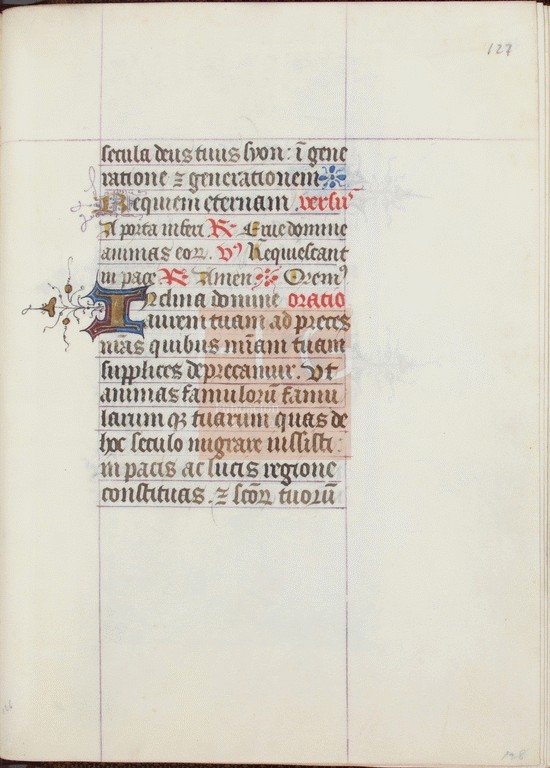 127
secula deus tuus syon: ī gene
ratione ⁊ generationem
Requiem eternam. versu᷒
A porta inferi R℣ Erue domine
animas eoꝝ. V᷒ Requiescant
in pace. R℣ Amen Orem᷒
Inclina domine oratio
aurem tuam ad preces
nr̄as quibus mīam tuam
supplices deprecamur. Vt
animas famuloꝝ famu
larum qꝫ tuarum quas de
hoc seculo migrare iussisti:
in pacis ac lucis regione
constituas. ⁊ sc̄oꝝ tuorū
128